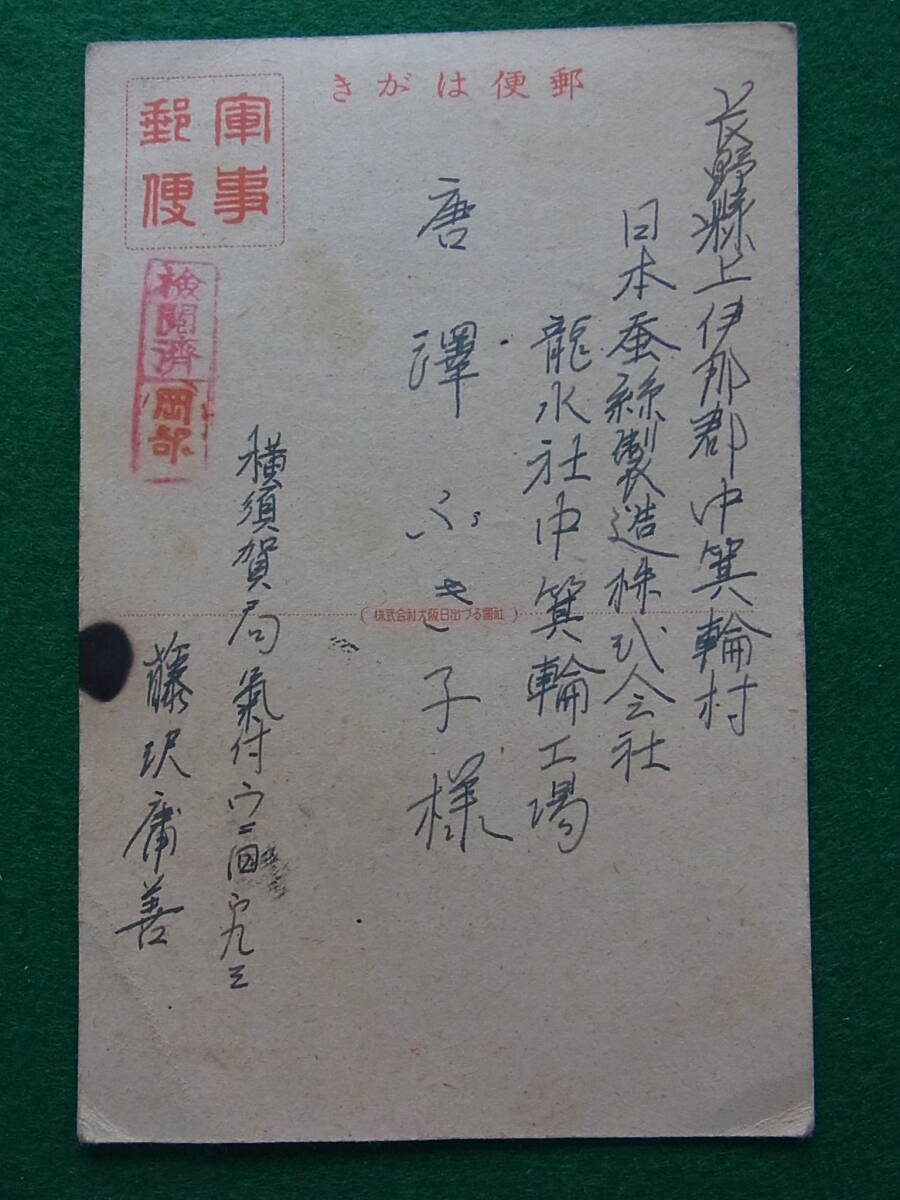 郵便はがき
軍事
郵便
検閲済
岡部
長野縣上伊那郡中箕輪村
日本蚕絲製造株式会社
龍水社中箕輪工場
唐澤ふき子様
(株式会社大阪日出づる團社)
横須賀局氣付ウ二四
藤沢庸善